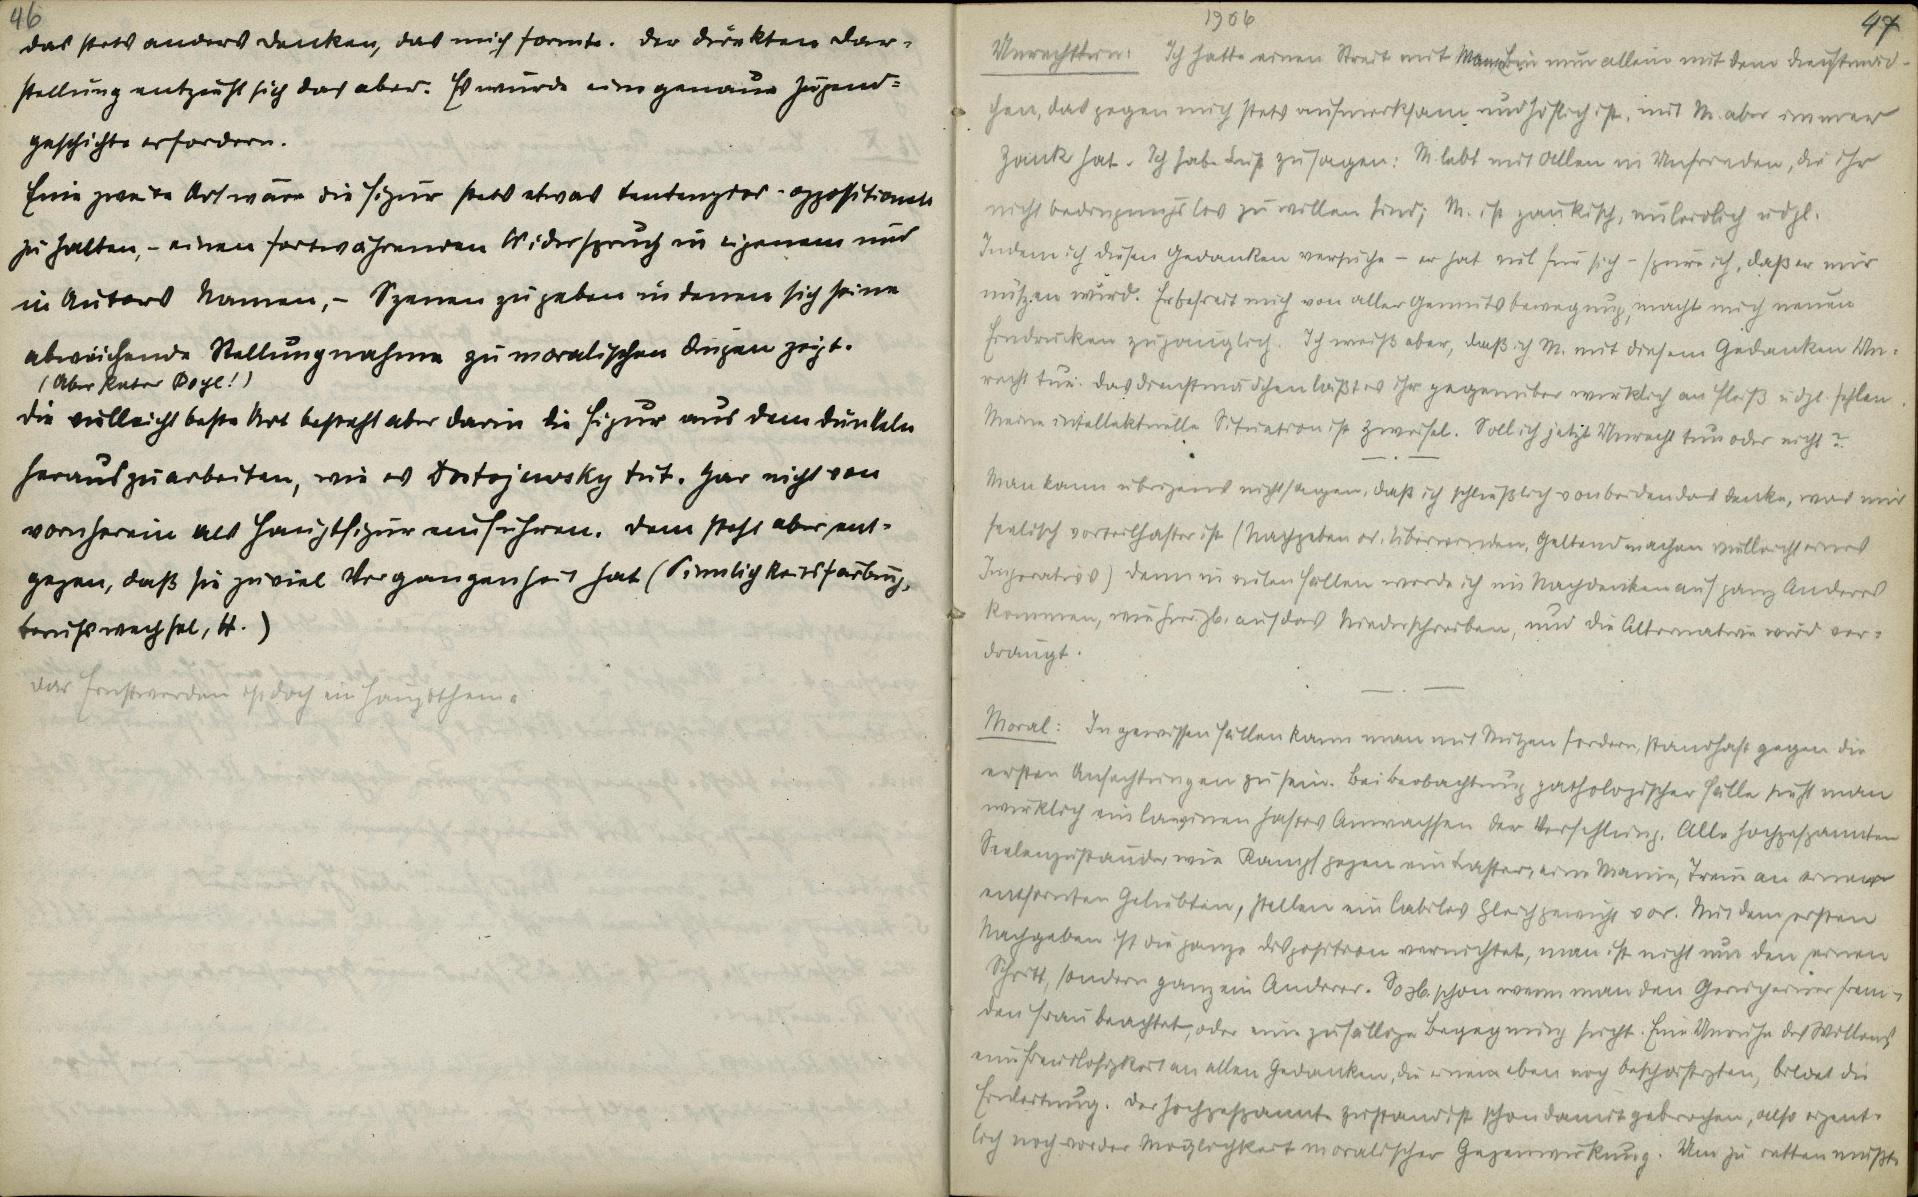 46
das stets anders denken, das mich formte. Der direkten Dar-
stellung entzieht sich das aber. Es würde eine genaue Jugend-
geschichte erfordern.
Eine zweite Art wäre die Figur stets etwas tendenziös-oppositionell
zu halten, – einen fortwährenden Widerspruch in eigenem und
in Autors Namen, – Szenen zu geben in denen sich seine
abweichende Stellungnahme zu moralischen Dingen zeigt.
(Aber Pater Bogl!)
Die vielleicht beste Art besteht aber darin die Figur aus dem dunkeln
herauszuarbeiten, wie es Dostojewsky tut. Gar nicht von
vornherein als Hauptfigur einführen. Dem steht aber ent-
gegen, daß sie zuviel Vergangenheit hat (Sinnlichkeitsfärbung,
berufswechsel, H.)
Das Ernstwerden ist doch ein Hauptthema
1906
47
Unrechttun: Ich hatte einen Streit mit Bin nun allein mit dem dienstmäd-
chen, das gegen mich stets aufmerksam und höflich ist, mit M. aber immer
Zank hat. Ich habe Lust zu sagen: M. lebt mit Allen in Unfrieden, die ihr
nicht bedingungslos zu willen sind; M. ist zänkisch, unleidlich udgl.
Indem ich diesen Gedanken versuche – er hat viel für sich – spüre ich, daß er mir
nützen würd. Er befreit mich von aller Gemütsbewegung, macht mich neuen
Eindrücken zugänglich. Ich weiß aber, daß ich M. mit diesem Gedanken Un-
recht tue. das dienstmädchen läßt es ihr gegenüber wirklich an Fleiß udgl. fehlen.
Meine intellektuelle Situation ist Zweifel. Soll ich jetzt Unrecht tun oder nicht?
Man kann übrigens nicht sagen, daß ich schließlich von beiden das denke, was mir
seelisch vorteilhafter ist (Nachgeben od. Überwinden, Geltendmachen vielleicht eines
Imperativs) denn in vielen Fällen werde ich im Nachdenken auf ganz Anderes
kommen, wie hier zb. auf das Niederschreiben, und die Alternative wird ver-
drängt.
Moral: In gewissen Fällen kann man mit Nutzen fordern, standhaft gegen die
ersten Anfechtungen zu sein. Bei Beobachtung pathologischer Fälle sieht man
wirklich ein lawinenhaftes Anwachsen der Verfehlung. Alle hochgespannten
Seelenzustände wie Kampf gegen ein Laster, eine Manie, Treue an einem
entfernten Geliebten, stellen ein labiles Gleichgewicht vor. Mit dem ersten
Nachgeben ist die ganze disposition vernichtet, man ist nicht nur den einen
Schritt, sondern ganz ein Anderer. So zb. schon wenn man den Geruch einer frem-
den Frau beachtet, oder eine zufällige Begegnung sucht. Eine Unruhe des Willens,
eine Freudlosigkeit an allen Gedanken, die einen eben noch beschäftigten, bildet die
Einleitung. Der hochgespannte zustand ist schon damit gebrochen, also eigent-
lich noch vor der Möglichkeit moralischer Gegenwirkung. Um zu retten müßte